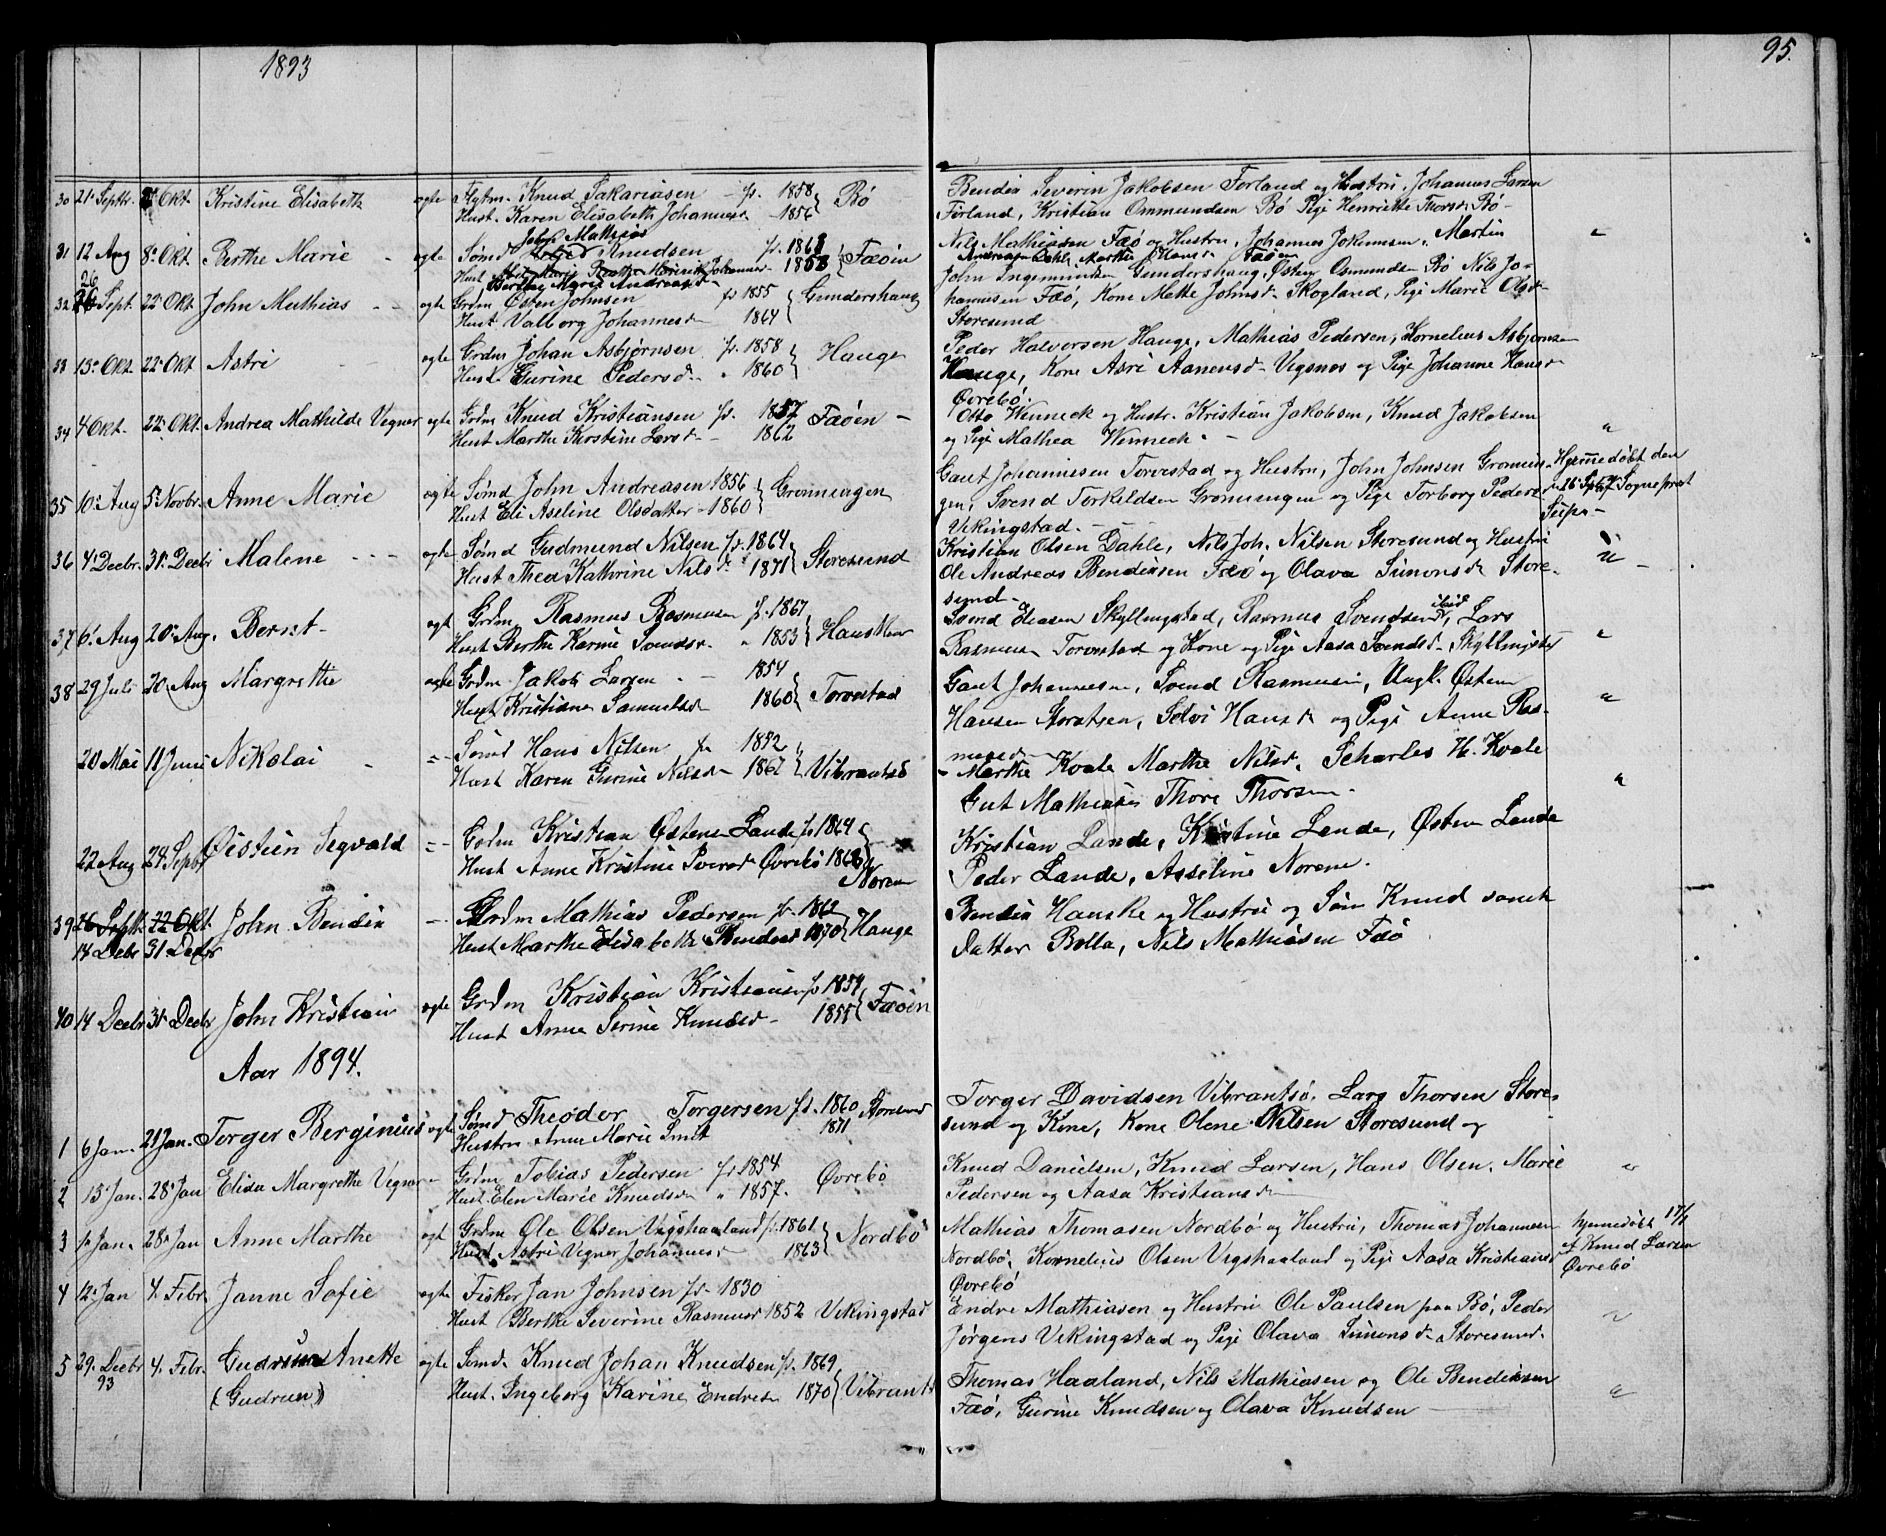 1893
95.
30 21. Septbr. Okt Kristine Elisabeth ægte Knud Sakariasen f. 1858 Bø
Hust. Karen Elisabeth Johannesd 1856
Bendix Severin Jakobsen Førland og Hustru, Johannes Larsen
Førland, Kristian Ommundsen Bø Pige Henriette Thorsd. Bø
John Mathias
31 12 Aug 8. Okt. Berthe Marie ægte Sømd Knudsen f. 1868 Fæøen
Hust Berthe Marie Andreasd 1858
Nils Mathiasen Fæø og Hustru, Johannes Johannesen, Martin
Andreasen Dahle, Marthe Hansd Fæøen
32 26 Sept. 22. Okt. John Mathias ægte Grdm Østen Johnsen f. 1855 Gundershaug
Hust Valborg Johannesd 1864
John Ingemundsen Gundershaug, Østen Osmundsen Bø Nils Jo-
hannesen Fæø, Kone Mette Johnsd. Skogland, Pige Marie Olsd
Storesund
33 15. Okt. 22. Okt Astri ægte Grdm Johan Asbjørnsen f. 1858 Hauge
Hust. Gurine Pedersd 1860
Peder Halvorsen Hauge, Mathias Pedersen, Kornelius Asbjørnsen
Hauge, Kone Asri Aanensd. Vigsnes og Pige Johanne Hansd
Øvrebø.
34 4 Okt. 22. Okt. Andrea Mathilde Vegner ægte Grdm Knud Kristiansen f. 1857 Fæøen
Hust Marthe Kirstine Larsd 1862
Otto Wenneck og Hustr. Kristian Jakobsen, Knud Jakobsen
og Pige Mathea Wenneck. "
35 10. Aug 5. Novbr. Anne Marie ægte Sømd John Andreasen 1856 Grønningen
Hust Eli Aseline Olsdatter 1860
Gaut Johannesen Torvestad og Hustru, John Johnsen Grønnin-
gen, Svend Torkildsen Grønningen og Pige Torborg Peders
Vikingstad.
Hjemmedøbt den
26 Sept. af Sogneprest
36 4. Decbr. 31. Decbr Malene ægte Sømd Gudmund Nilsen f. 1864 Storesund
Hust Thea Kathrine Nilsd 1871
Kristian Olsen Dahle, Nils Joh. Nilsen Storesund og Hustru
Ole Andreas Bendixsen Fæø og Olava Simonsd Store-
sund
37 6. Aug 20. Aug. Bernt ægt Grdm Rasmus Rasmusen f. 1867
Hust Berthe Karine Svendsd. 1853
Svend Eliasen Skyllingstad, Rasmus Svendsen ibid, Lars
Rasmusen Torvestad og Kone og Pige Aasa Svendsd. Skyllingstad "
38 29 Juli 20. Aug Margrethe ægte Grdm Jakob Larsen 1854 Torvestad
Hust Kristiane Samuelsd 1860
Gaut Johannesen, Svend Rasmusen, Ungk. Østen
Hansen Hansd og Pige Anne Ras-
musd "
20 Mai 11 Juni Nikolai Sømd Hans Nilsen f. 1852 Vibrantsø
Hust Karen Gurine Nilsd 1867
Marthe Kvale Marthe Nilsd. Scharles H. Kvale
Gut Mathias Thore Thorsen. "
22 Aug 24. Septbr Øistein Segvald Grdm Kristian Østensen Lande f. 1864
Hust Anne Kristine Øvrebø 1868 Norem
Kristian Lande, Kristine Lande, Østen Lande
Peder Lande, Asseline Norene.
39 26 Septbr 22 Okt. John Bendix Grdm Mathias Pedersen f. 1862 Hauge
14 Debr 31 Decbr Hust Marthe Elisabeth Bendixd 1870
Bendix Hauske og Hustru og Søn Knud samt
Datter Bolla, Nils Mathiasen Fæø
40 14 Decbr 31. Decbr John Kristian ægte Grdm Kristian Kristiansen f. 1854 Fæøen
Hust Anne Serine Knudsd 1855
Aar 1894.
1 6 Jan. 21 Jan. Torger Berginius ægte Sømd Theodor Torgersen f. 1860 Storesund
Hustru Anne Marie Smit 1871
Torger Davidsen Vibrantsø. Lars Thorsen Store-
sund og Kone, Kone Olene Nilsen Storesund og
2 15. Jan. 28. Jan Elisa Margrethe Vegner Grdm Tobias Pedersen f. 1854 Øvrebø
Hust Elen Marie Knudsd " 1857.
Knud Danielsen, Knud Larsen, Hans Olsen. Marie
Pedersen og Aasa Kristiansd "
3 Jan. 28. Jan Anne Marthe ægt Grdm Ole Olsen Vigshaaland f. 1861 Nordbø
Hust Astri Vegner Johannesd 1863
Mathias Thomasen Nordbø og Hustru, Thomas Johannesen
Nordbø, Kornelius Olsen Vigshaaland og Pige Aasa Kristiansd
Øvrebø
hjemmedøbt 17/1
af Knud Larsen
Øvrebø
4 12. Jan 4. Febr. Janne Sofie ægte Fisker Jan Johnsen f. 1830
Hust Berthe Severine Rasmusd 1852 Vikingstad
Endre Mathiasen og Hustru Ole Paulsen paa Bø, Peder
Jørgens Vikingstad og Pige Olava Simonsd. Storesund.
5 29. Decbr 93 4. Febr. Gudrun Anette ægte Sømd. Knud Johan Knudsen f. 1869
(Gudrun) Hust. Ingeborg Karine Endresd 1870 Vibrants
Thomas Haaland, Nils Mathiasen og Ole Bendixsen
Fæø, Gurine Knudsen og Olava Knudsen